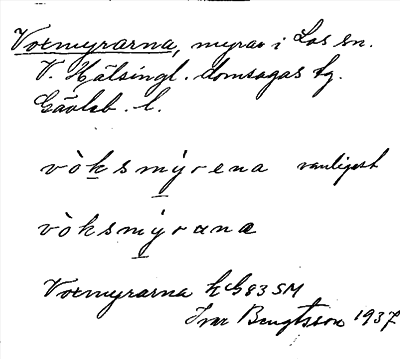 Voxmyrarna, myrar i Los sn.
V. Hälsingl. domsagas tg.
Gävleb. l.
vòksmýrena vanligast
vòksmýrana
Voxmyrarna hS83SM
Ivar Bengtsson 1937